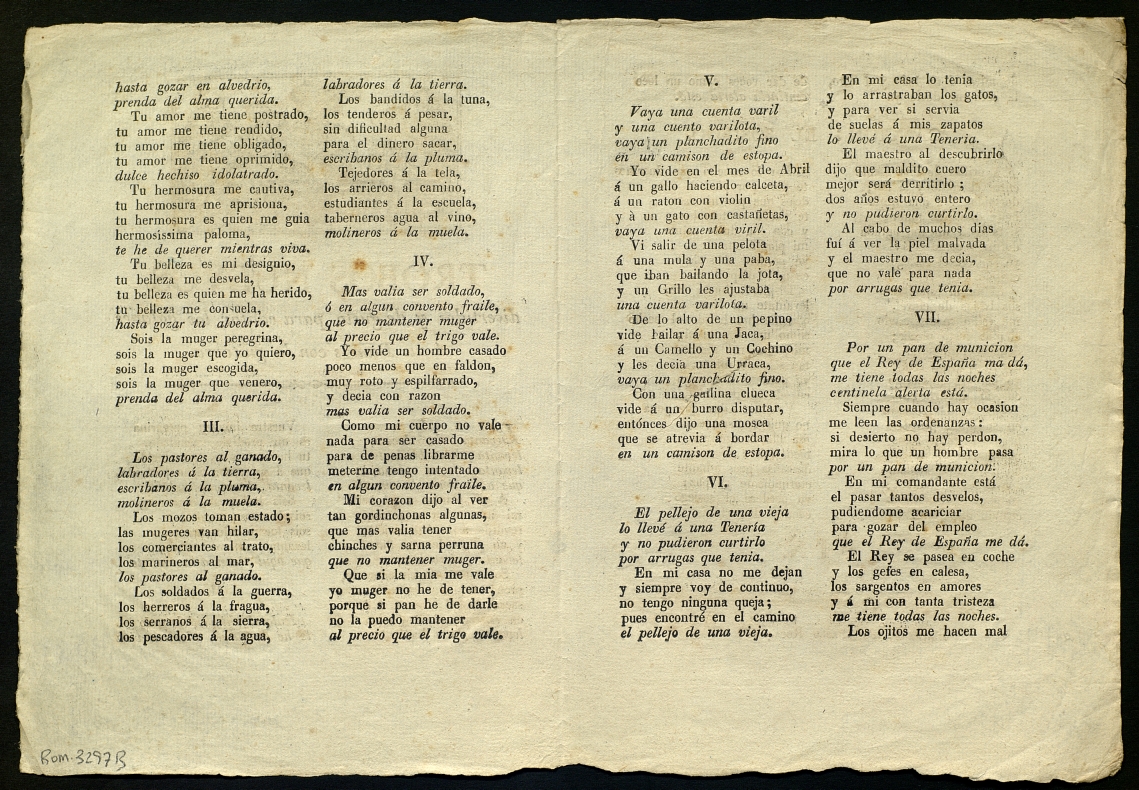 hasta gozar en alvedrio,
prenda del alma querida.
Tu amor me tiene postrado,
tu amor me tiene rendido,
tu amor me tiene obligado,
tu amor me tiene oprimido,
dulce hechiso idolatrado.
Tu hermosura me cautiva,
tu hermosura me aprisiona,
tu hermosura es quien me guia
hermosíssima paloma,
te he de querer mientras viva.
Tu belleza es mi designio,
tu belleza me desvela,
tu belleza es quien me ha herido,
tu belleza me consuela,
hasta gozar tu alvedrio.
Sois la muger peregrina,
sois la muger que yo quiero,
sois la muger escogida,
sois la muger que venero,
prenda del alma querida.
III.
Los pastores al ganado,
labradores á la tierra,
escribanos á la pluma,
molineros á la muela.
Los mozos toman estado;
las mugeres van hilar,
los comerciantes al trato,
los marineros al mar,
los pastores al ganado.
Los soldados á la guerra,
los herreros á la fragua,
los serranos á la sierra,
los pescadores á la agua,
labradores á la tierra.
Los bandidos á la tuna,
los tenderos á pesar,
sin dificultad alguna
para el dinero sacar,
escribanos á la pluma.
Tejedores á la tela,
los arrieros al camino,
estudiantes á la escuela,
taberneros agua al vino,
molineros á la muela.
IV.
Mas valia ser soldado,
ó en algun convento fraile,
que no mantener muger
al precio que el trigo vale.
Yo vide un hombre casado
poco menos que en faldon,
muy roto y espilfarrado,
y decia con razon
mas valia ser soldado.
Como mi cuerpo no vale
nada para ser casado
para de penas librarme
meterme tengo intentado
en algun convento fraile.
Mi corazon dijo al ver
tan gordinchonas algunas,
que mas valia tener
chinches y sarna perruna
que no mantener muger.
Que si la mia me vale
yo muger no he de tener,
porque si pan he de darle
no la puedo mantener
al precio que el trigo vale.
V.
Vaya una cuenta varil
y una cuento varilota,
vaya un planchadito fino
en un camison de estopa.
Yo vide en el mes de Abril
á un gallo haciendo calceta,
á un raton con violin
y à un gato con castañetas,
vaya una cuenta viril.
Vi salir de una pelota
á una mula y una paba,
que iban bailando la jota,
y un Grillo les ajustaba
una cuenta varilota.
De lo alto de un pepino
vide bailar á una Jaca,
á un Camello y un Cochino
y les decia una Urraca,
vaya un planchadito fino.
Con una gallina clueca
vide á un burro disputar,
entónces dijo una mosca
que se atrevia á bordar
en un camison de estopa.
VI.
El pellejo de una vieja
lo llevé á una Tenería
y no pudieron curtirlo
por arrugas que tenia.
En mi casa no me dejan
y siempre voy de continuo,
no tengo ninguna queja;
pues encontré en el camino
el pellejo de una vieja.
En mi casa lo tenia
y lo arrastraban los gatos,
y para ver si servia
de suelas á mis zapatos
lo llevé á una Teneria.
El maestro al descubrirlo
dijo que maldito cuero
mejor será derritirlo;
dos años estuvo entero
y no pudieron curtirlo.
Al cabo de muchos dias
fuí á ver la piel malvada
y el maestro me decia,
que no vale para nada
por arrugas que tenia.
VII.
Por un pan de municion
que el Rey de España ma dá,
me tiene todas las noches
centinela alerta está.
Siempre cuando hay ocasion
me leen las ordenanzas:
si desierto no hay perdon,
mira lo que un hombre pasa
por un pan de municion.
En mi comandante está
el pasar tantos desvelos,
pudiendome acariciar
para gozar del empleo
que el Rey de España me dá.
El Rey se pasea en coche
y los gefes en calesa,
los sargentos en amores
y á mi con tanta tristeza
me tiene todas las noches.
Los ojitos me hacen mal
Rom-3297B